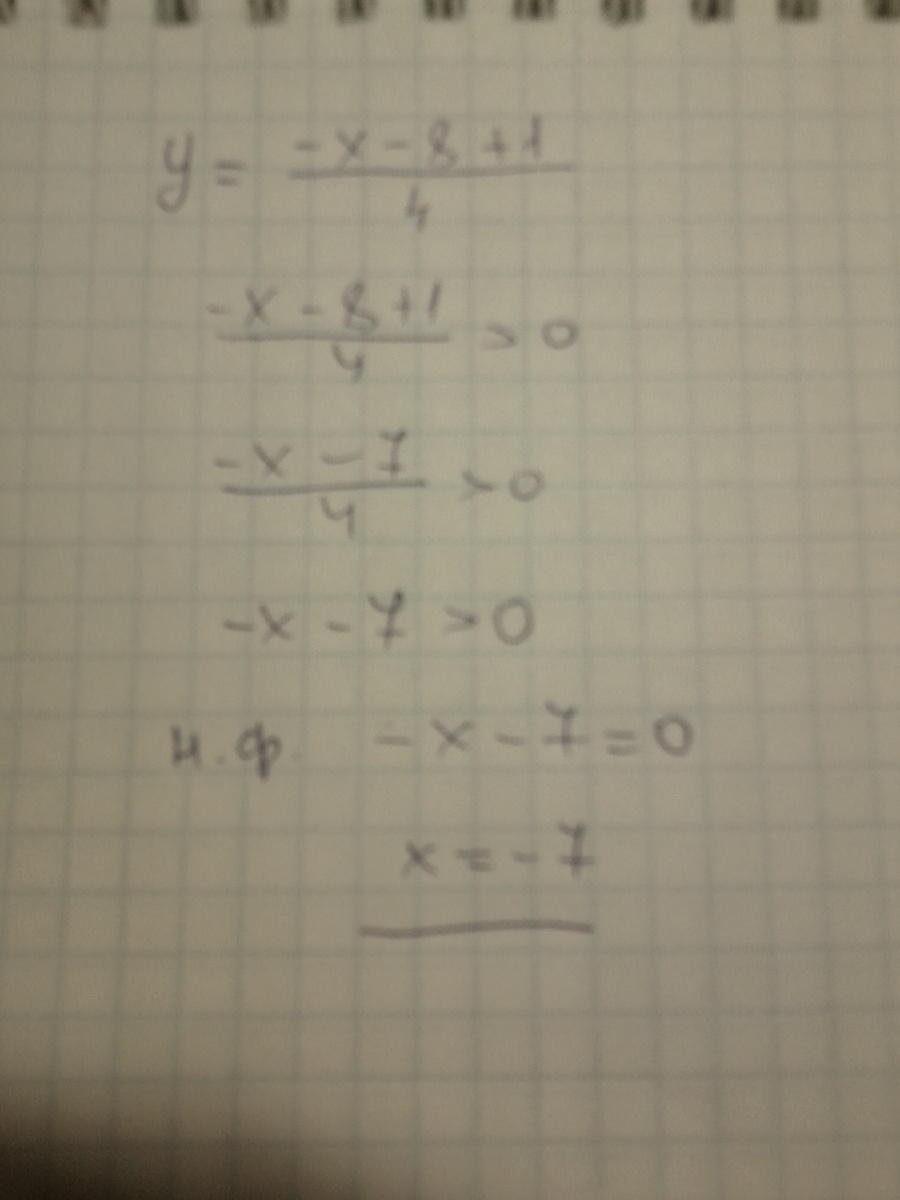 y = (-x - 8 + 1)/4
(-x - 8 + 1)/4 > 0
(-x - 7)/4 > 0
-x - 7 > 0
н.ф. -x - 7 = 0
x = -7